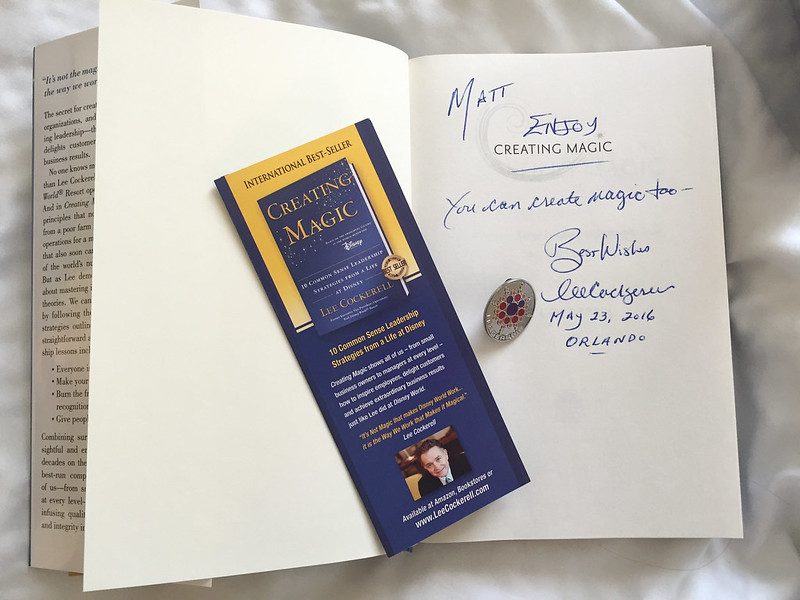 "It's not the mag
the way we wor
The secret for creat
organizations, and
ing leadership—th
delights customer
business results.
No one knows m
than Lee Cockerel
World® Resort ope
And in Creating M
principles that no
from a poor farm
operations for a m
that also soon car
of the world's nu
But as Lee demo
about mastering i
theories. We can
by following the
strategies outlin
straightforward a
ship lessons inclu
• Everyone i
• Make your
• Burn the fr
recognition
• Give peopl
Combining sur
sightful and en
decades on the
best-run comp
of us—from s
at every level—
infusing qualit
and integrity in
INTERNATIONAL BEST-SELLER
CREATING
MAGIC
Disney
10 COMMON SENSE LEADERSHIP
STRATEGIES FROM A LIFE
AT DISNEY
BEST SELLER
LEE COCKERELL
10 Common Sense Leadership
Strategies from a Life at Disney
Creating Magic shows all of us – from small
business owners to managers at every level –
how to inspire employees, delight customers
and achieve extraordinary business results
just like Lee did at Disney World.
"It's Not Magic that makes Disney World Work...
it is the Way We Work that Makes it Magical."
Lee Cockerell
Available at Amazon, Bookstores or
www.LeeCockerell.com
MATT
ENJOY
CREATING MAGIC®
You can create magic too–
Best Wishes
Lee Cockerell
MAY 23, 2016
ORLANDO